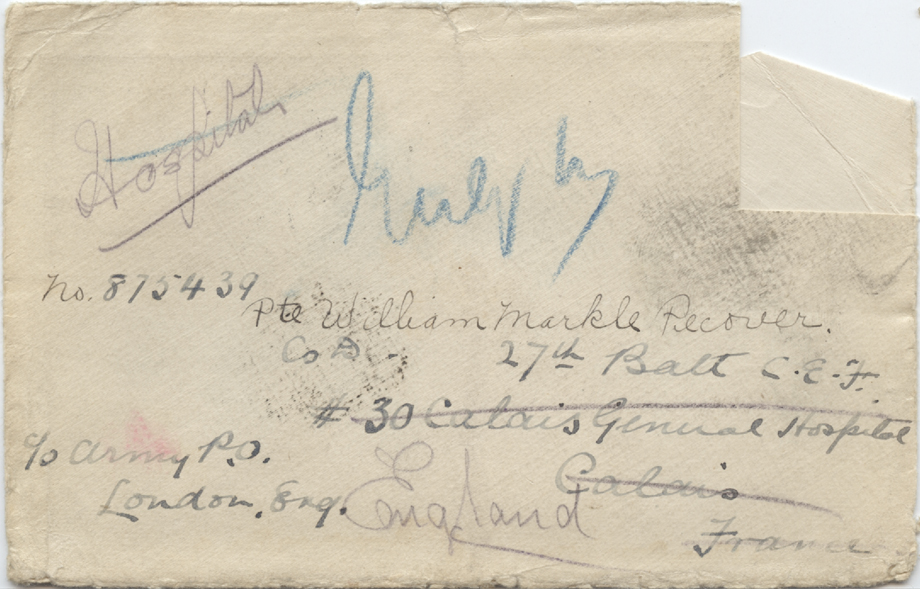 Hospital
No. 875439
Pte William Markle Pecover.
Co D. 27th Batt C.E.F.
# 30 Calais General Hospital
c/o Army P.O.
Calais
London, Eng. England
France